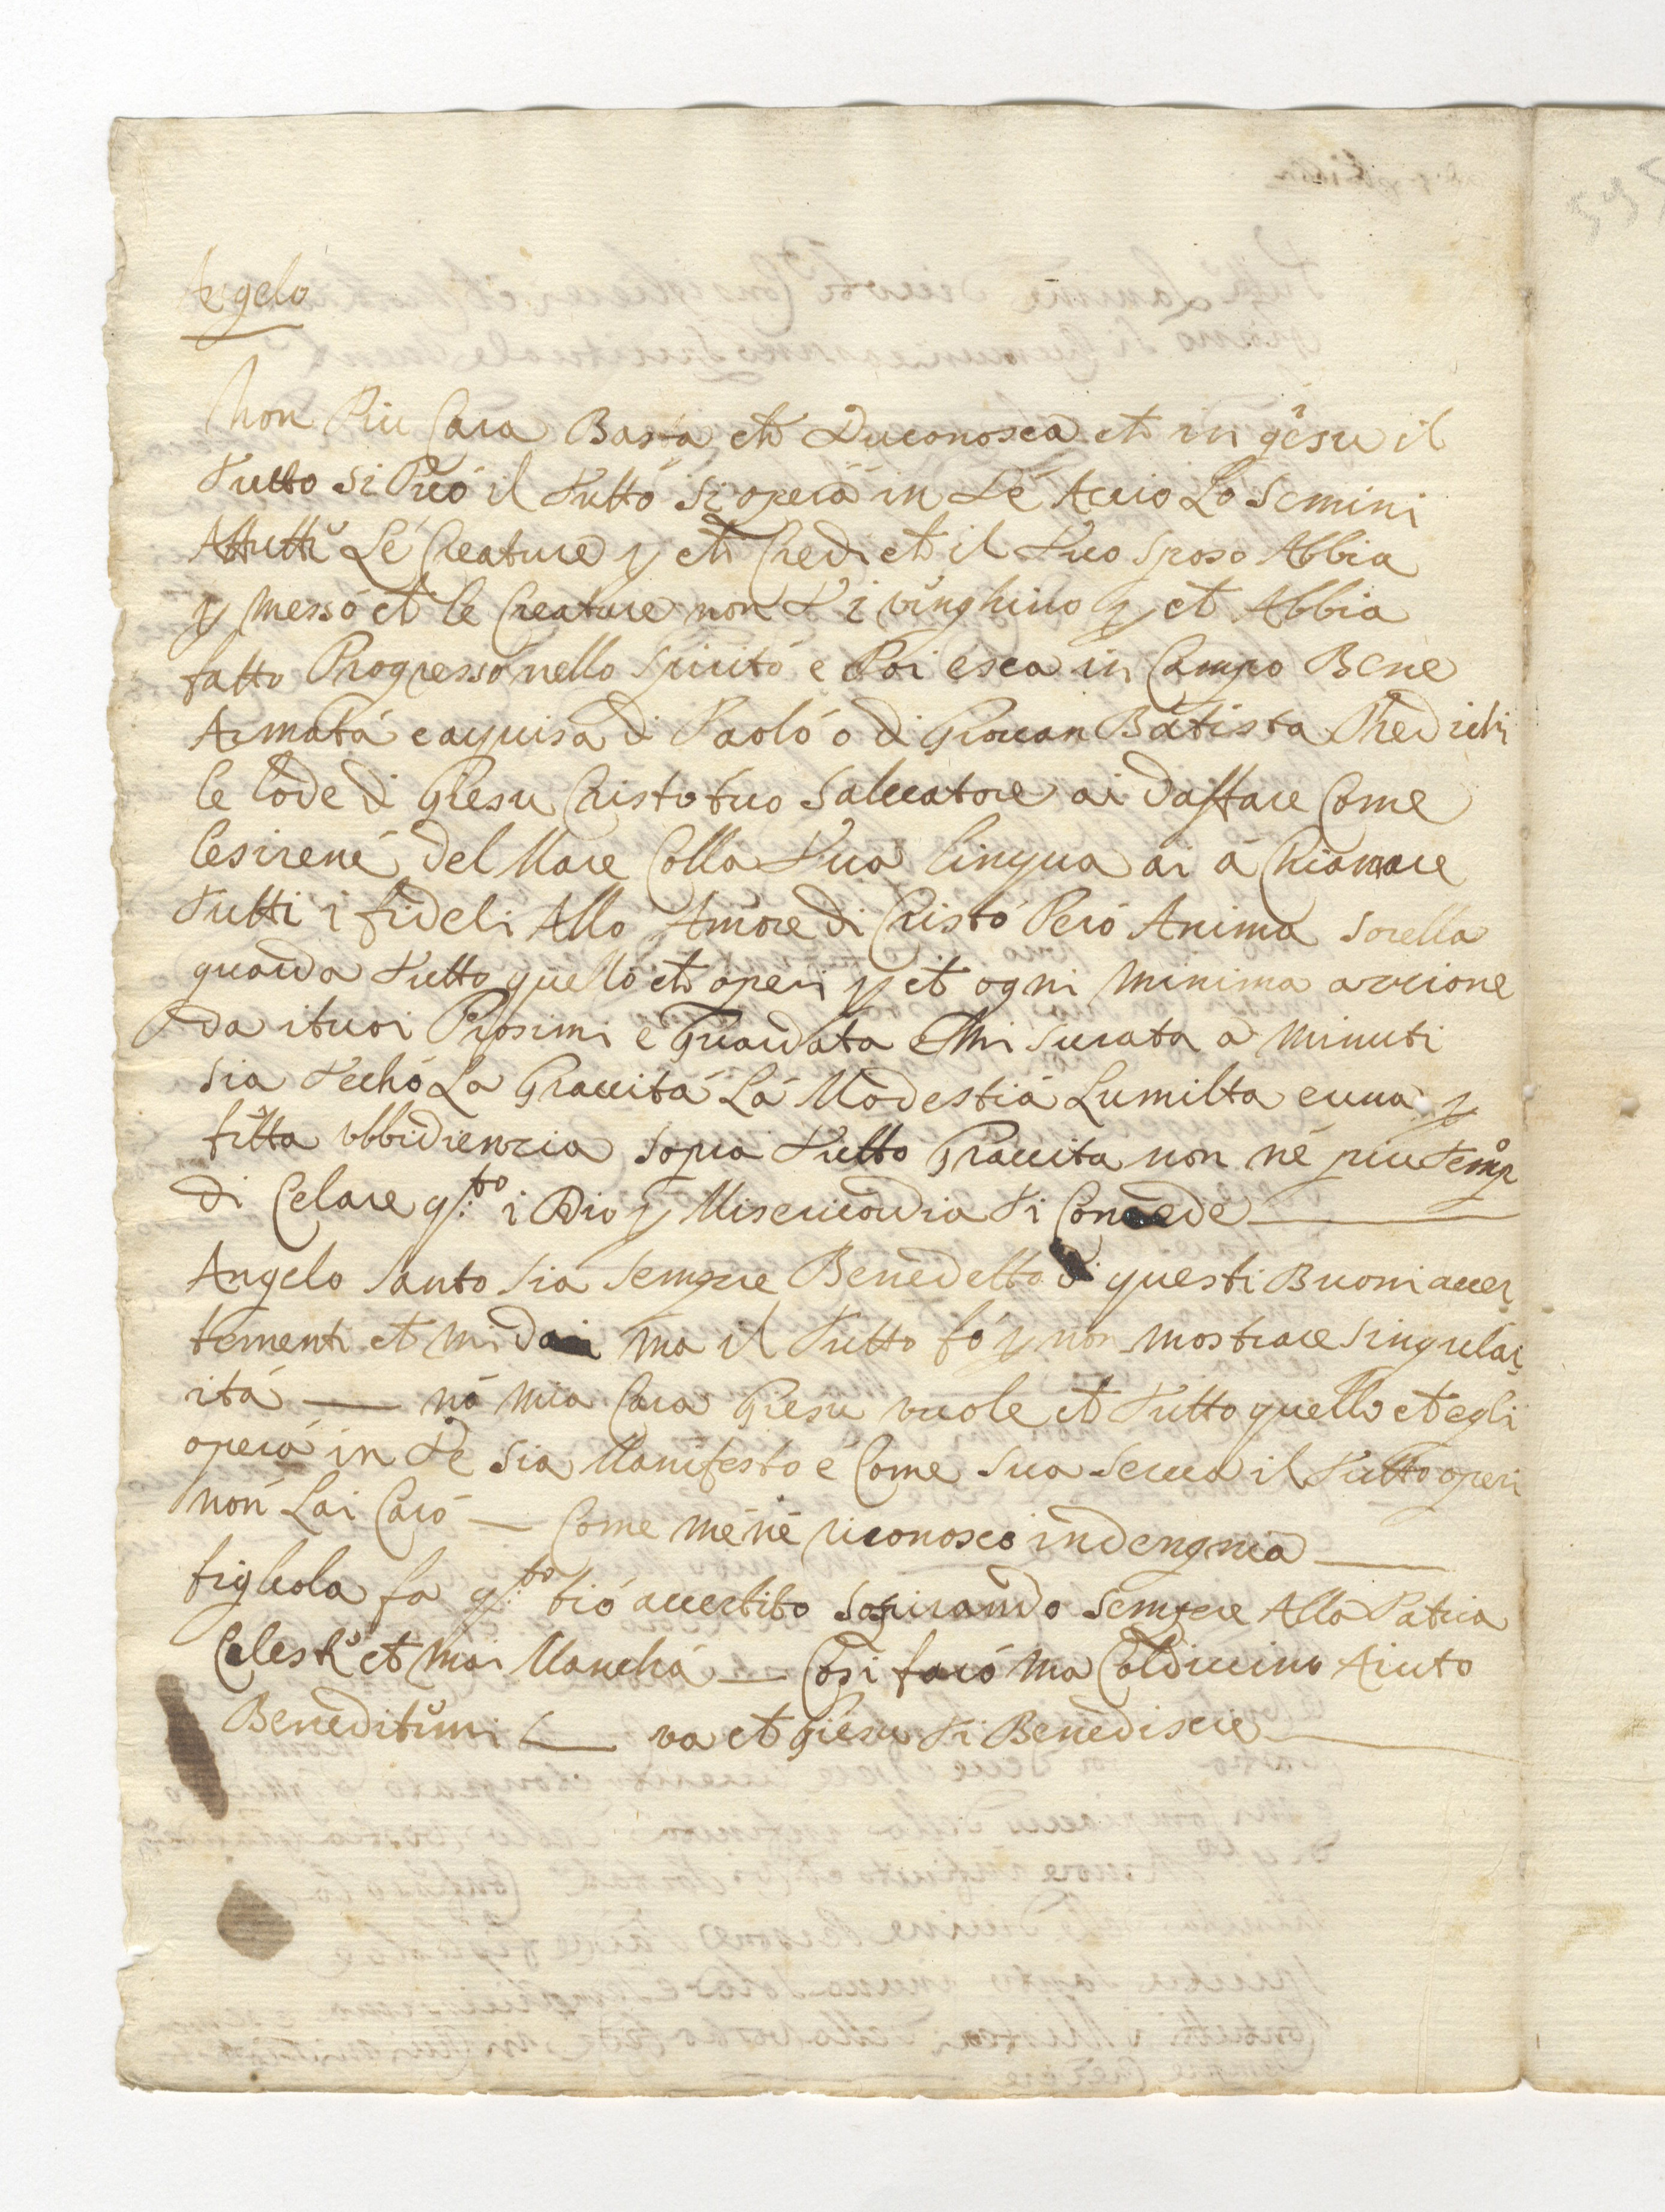 Angelo
Non Piu Cara Basta ch Tu conosca ch in giesu il
Tutto si Può il Tutto si opera in Té Acciò Lo Semini
Attutti Lé Creature p ch Credi ch il Tuo sposo Abbia
p messo ch le Creature non Ti vinghino p ch Abbia
fatto Progresso nello spirito e Poi esca in Campo Bene
Armata e aquisa di Paolo o di Giovan Batista Predichi
le lode di Giesu Cristo tuo Salvatore ai da ffare Come
lesirene del Mare Colla Tua lingua ai a Chiamare
Tutti i fideli Allo Amore di Cristo Però Anima Sorella
guarda Tutto quello ch operi p ch ogni minima azzione
da i tuoi Prosimi é Guardata e Misurata a minuti
sia Techo La Gravità La Modestia Lumilta e una p
fetta Ubbidienzia sopra Tutto Gravita non né piu Temp
di Celare q.to i Dio p Misericordia Ti Concede
Angelo Santo Sia Sempre Benedetto di questi Buoni aver
tementi ch mi dai ma il Tutto fó p non mostrare Singular
ità — nò mia Cara Giesu vuole ch Tutto quello ch egli
opera in Te Sia Manifesto e Come Sua Serva il Tutto operi
non Lai Caro — Come mé né riconosco indengnia —
figliola fa q.to tiò avertito sospirando sempre Alla Patria
Celeste ch Mai Mancha — Cosi farò ma Col divino Aiuto
Beneditemi — va ch Giesu Ti Benedisce